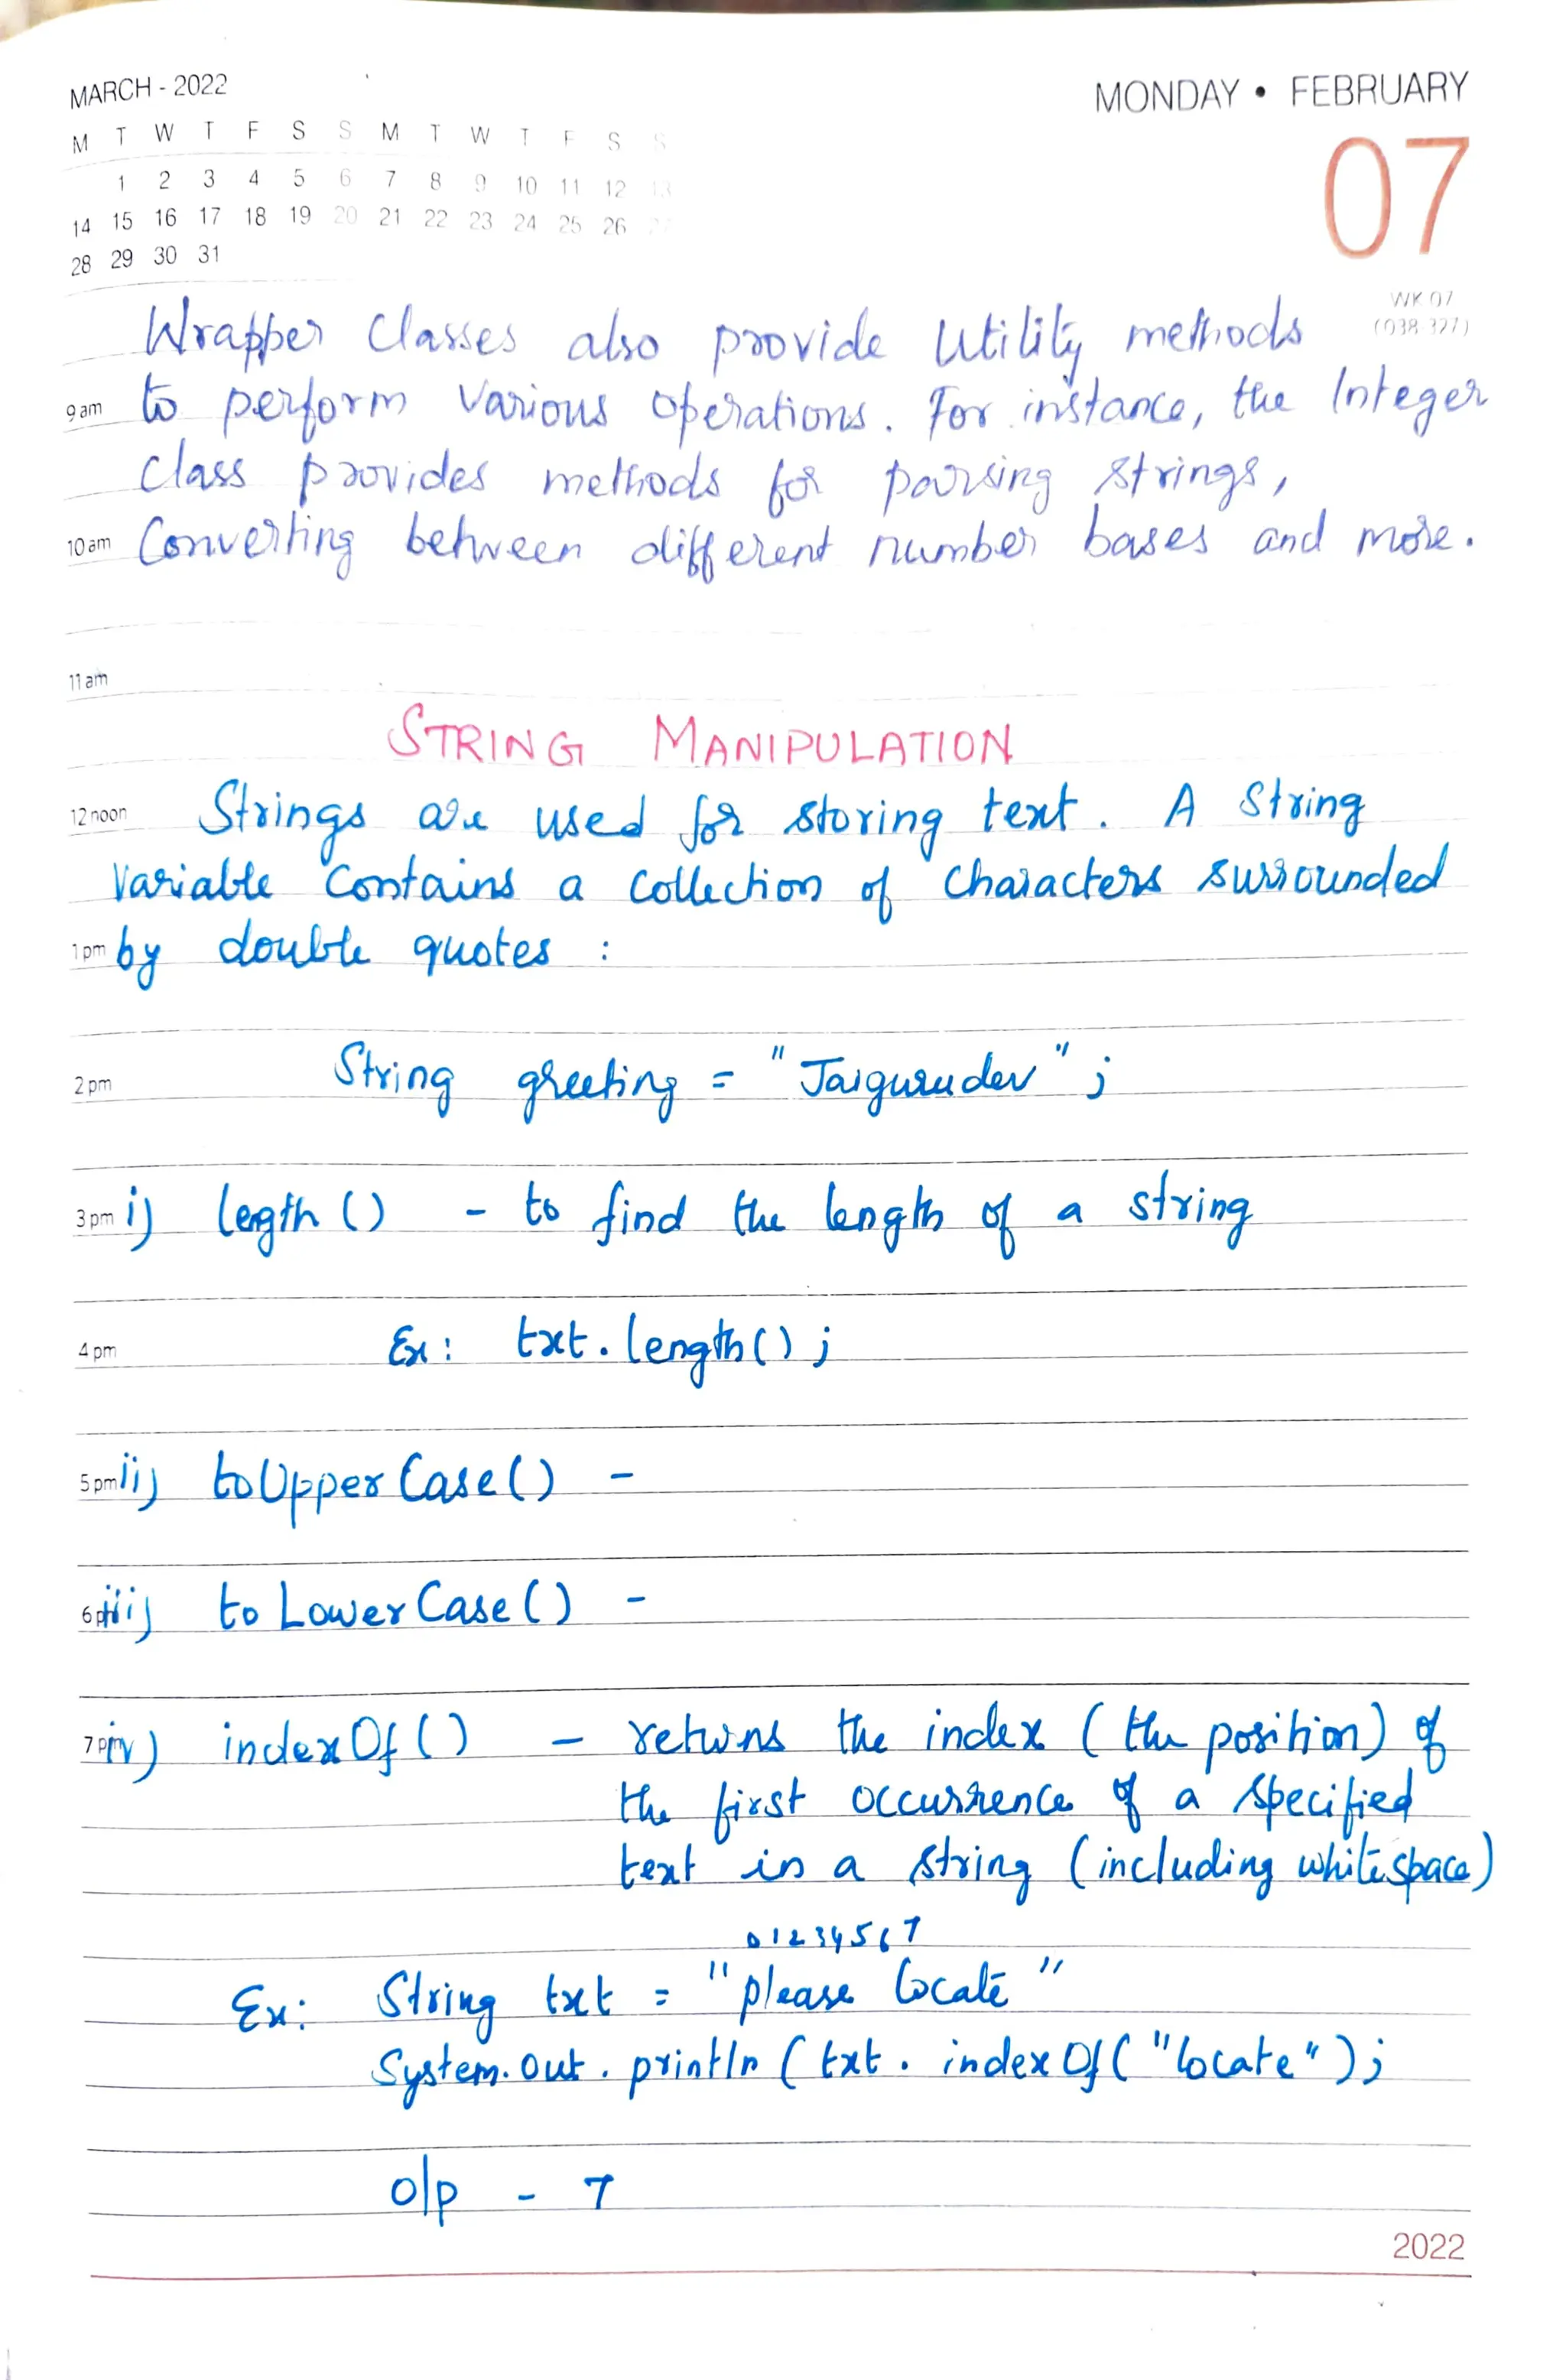 MARCH - 2022
M T W T F S S M T W T F S S
1 2 3 4 5 6 7 8 9 10 11 12 13
14 15 16 17 18 19 20 21 22 23 24 25 26 27
28 29 30 31
MONDAY • FEBRUARY
07
WK 07
(038 327)
Wrapper Classes also provide Utility methods
9 am to perform various operations. For instance, the Integer
Class provides methods for parsing strings,
10 am Converting between different number bases and more.
11 am
STRING MANIPULATION
12 noon Strings are used for storing text. A String
Variable contains a collection of characters surrounded
1 pm by double quotes :
2 pm String greeting = "Jaigurudev" ;
3 pm i) legth () - to find the length of a string
4 pm Ex: txt.length() ;
5 pm ii) toUpperCase() -
6 pm iii) toLowerCase() -
7 pm iv) indexOf() - returns the index (the position) of
the first occurrence of a specified
text in a string (including whitespace)
01234567
Ex: String txt = "please locate"
System.out.println(txt.indexOf("locate");
o/p - 7
2022